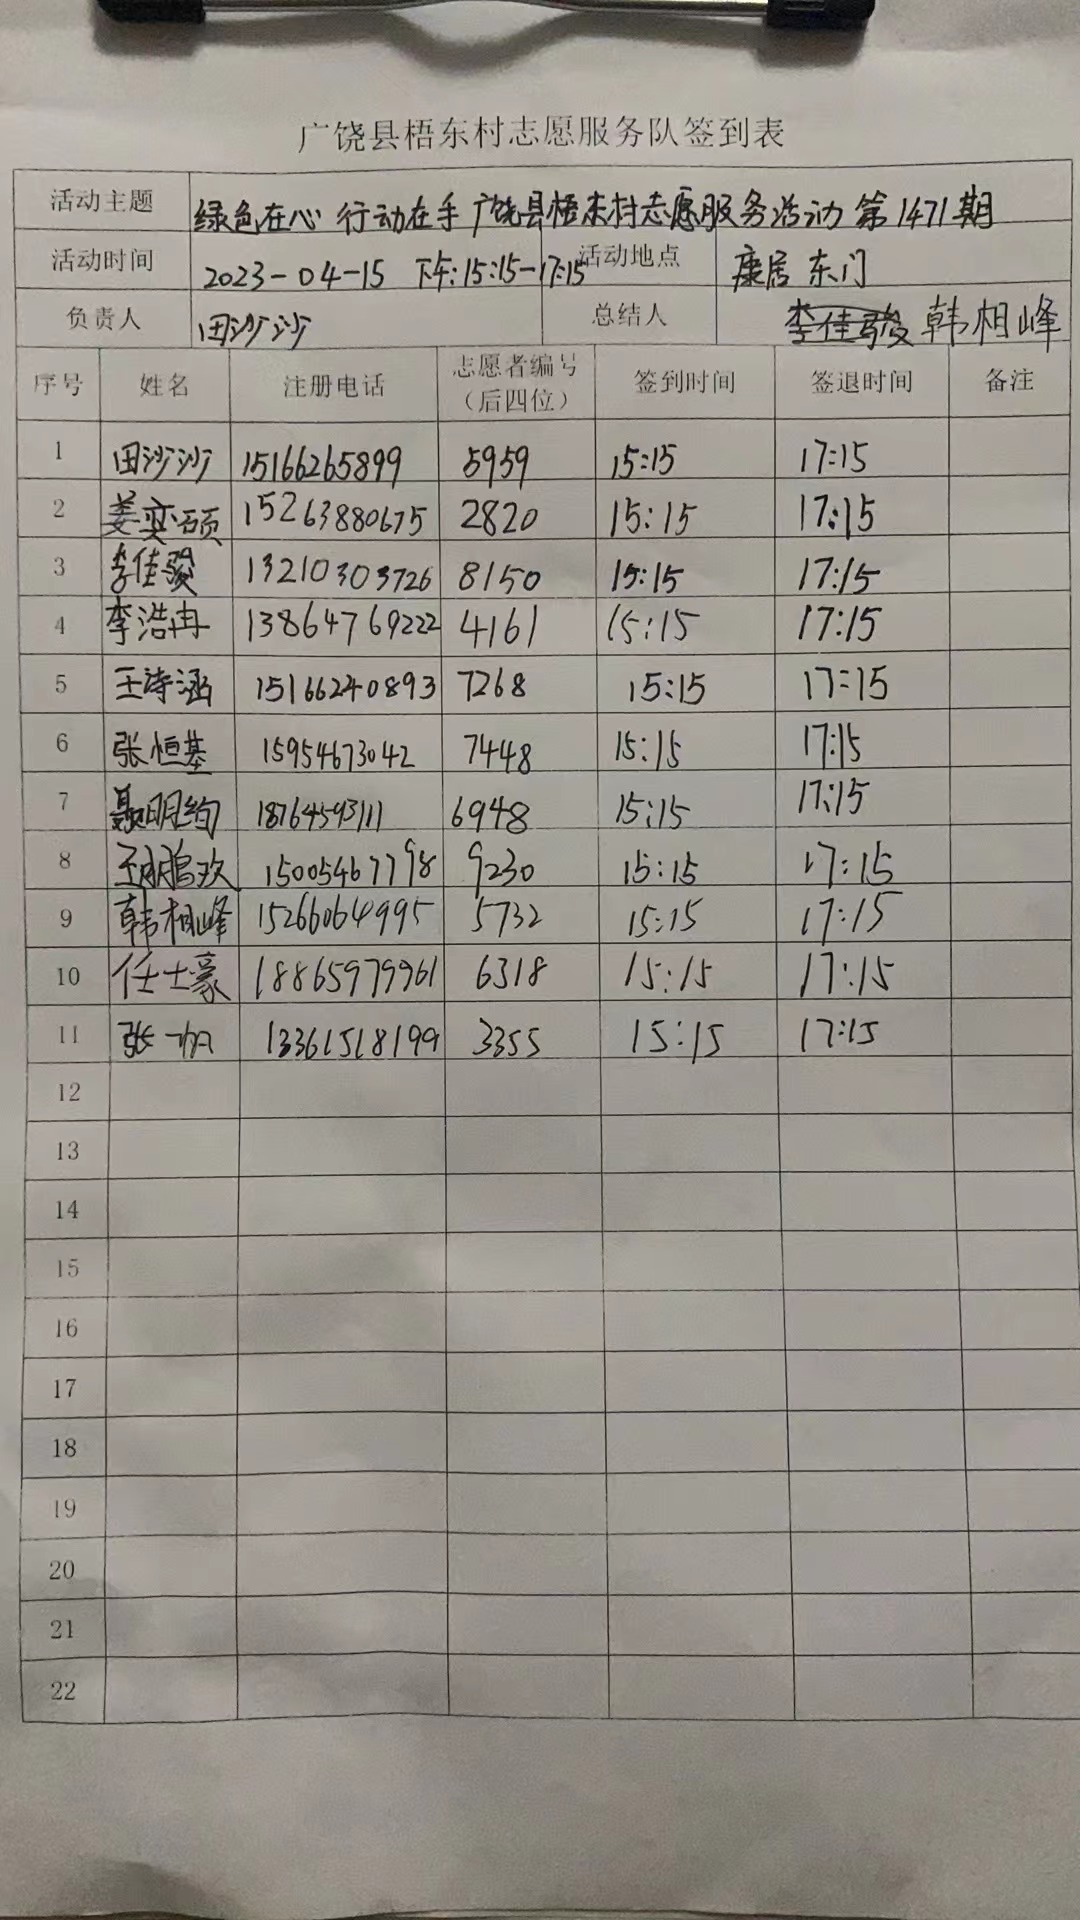 广饶县梧东村志愿服务队签到表
活动主题 绿色在心 行动在手 广饶县梧东村志愿服务活动 第1471期
活动时间 2023-04-15 下午:15:15-17:15 活动地点 康居 东门
负责人 田沙沙 总结人 李佳骏 韩相峰
序号 姓名 注册电话 志愿者编号（后四位） 签到时间 签退时间 备注
1 田沙沙 15166265899 5959 15:15 17:15
2 姜奕硕 15263880675 2820 15:15 17:15
3 李佳骏 13210303726 8150 15:15 17:15
4 李浩冉 13864769222 4161 15:15 17:15
5 王诗涵 15166240893 7268 15:15 17:15
6 张恒基 15954673042 7448 15:15 17:15
7 聂明绚 18764593111 6948 15:15 17:15
8 王鹏欢 15005467798 9230 15:15 17:15
9 韩相峰 15266064995 5732 15:15 17:15
10 任士豪 18865979961 6318 15:15 17:15
11 张一帆 13361518199 3355 15:15 17:15
12
13
14
15
16
17
18
19
20
21
22